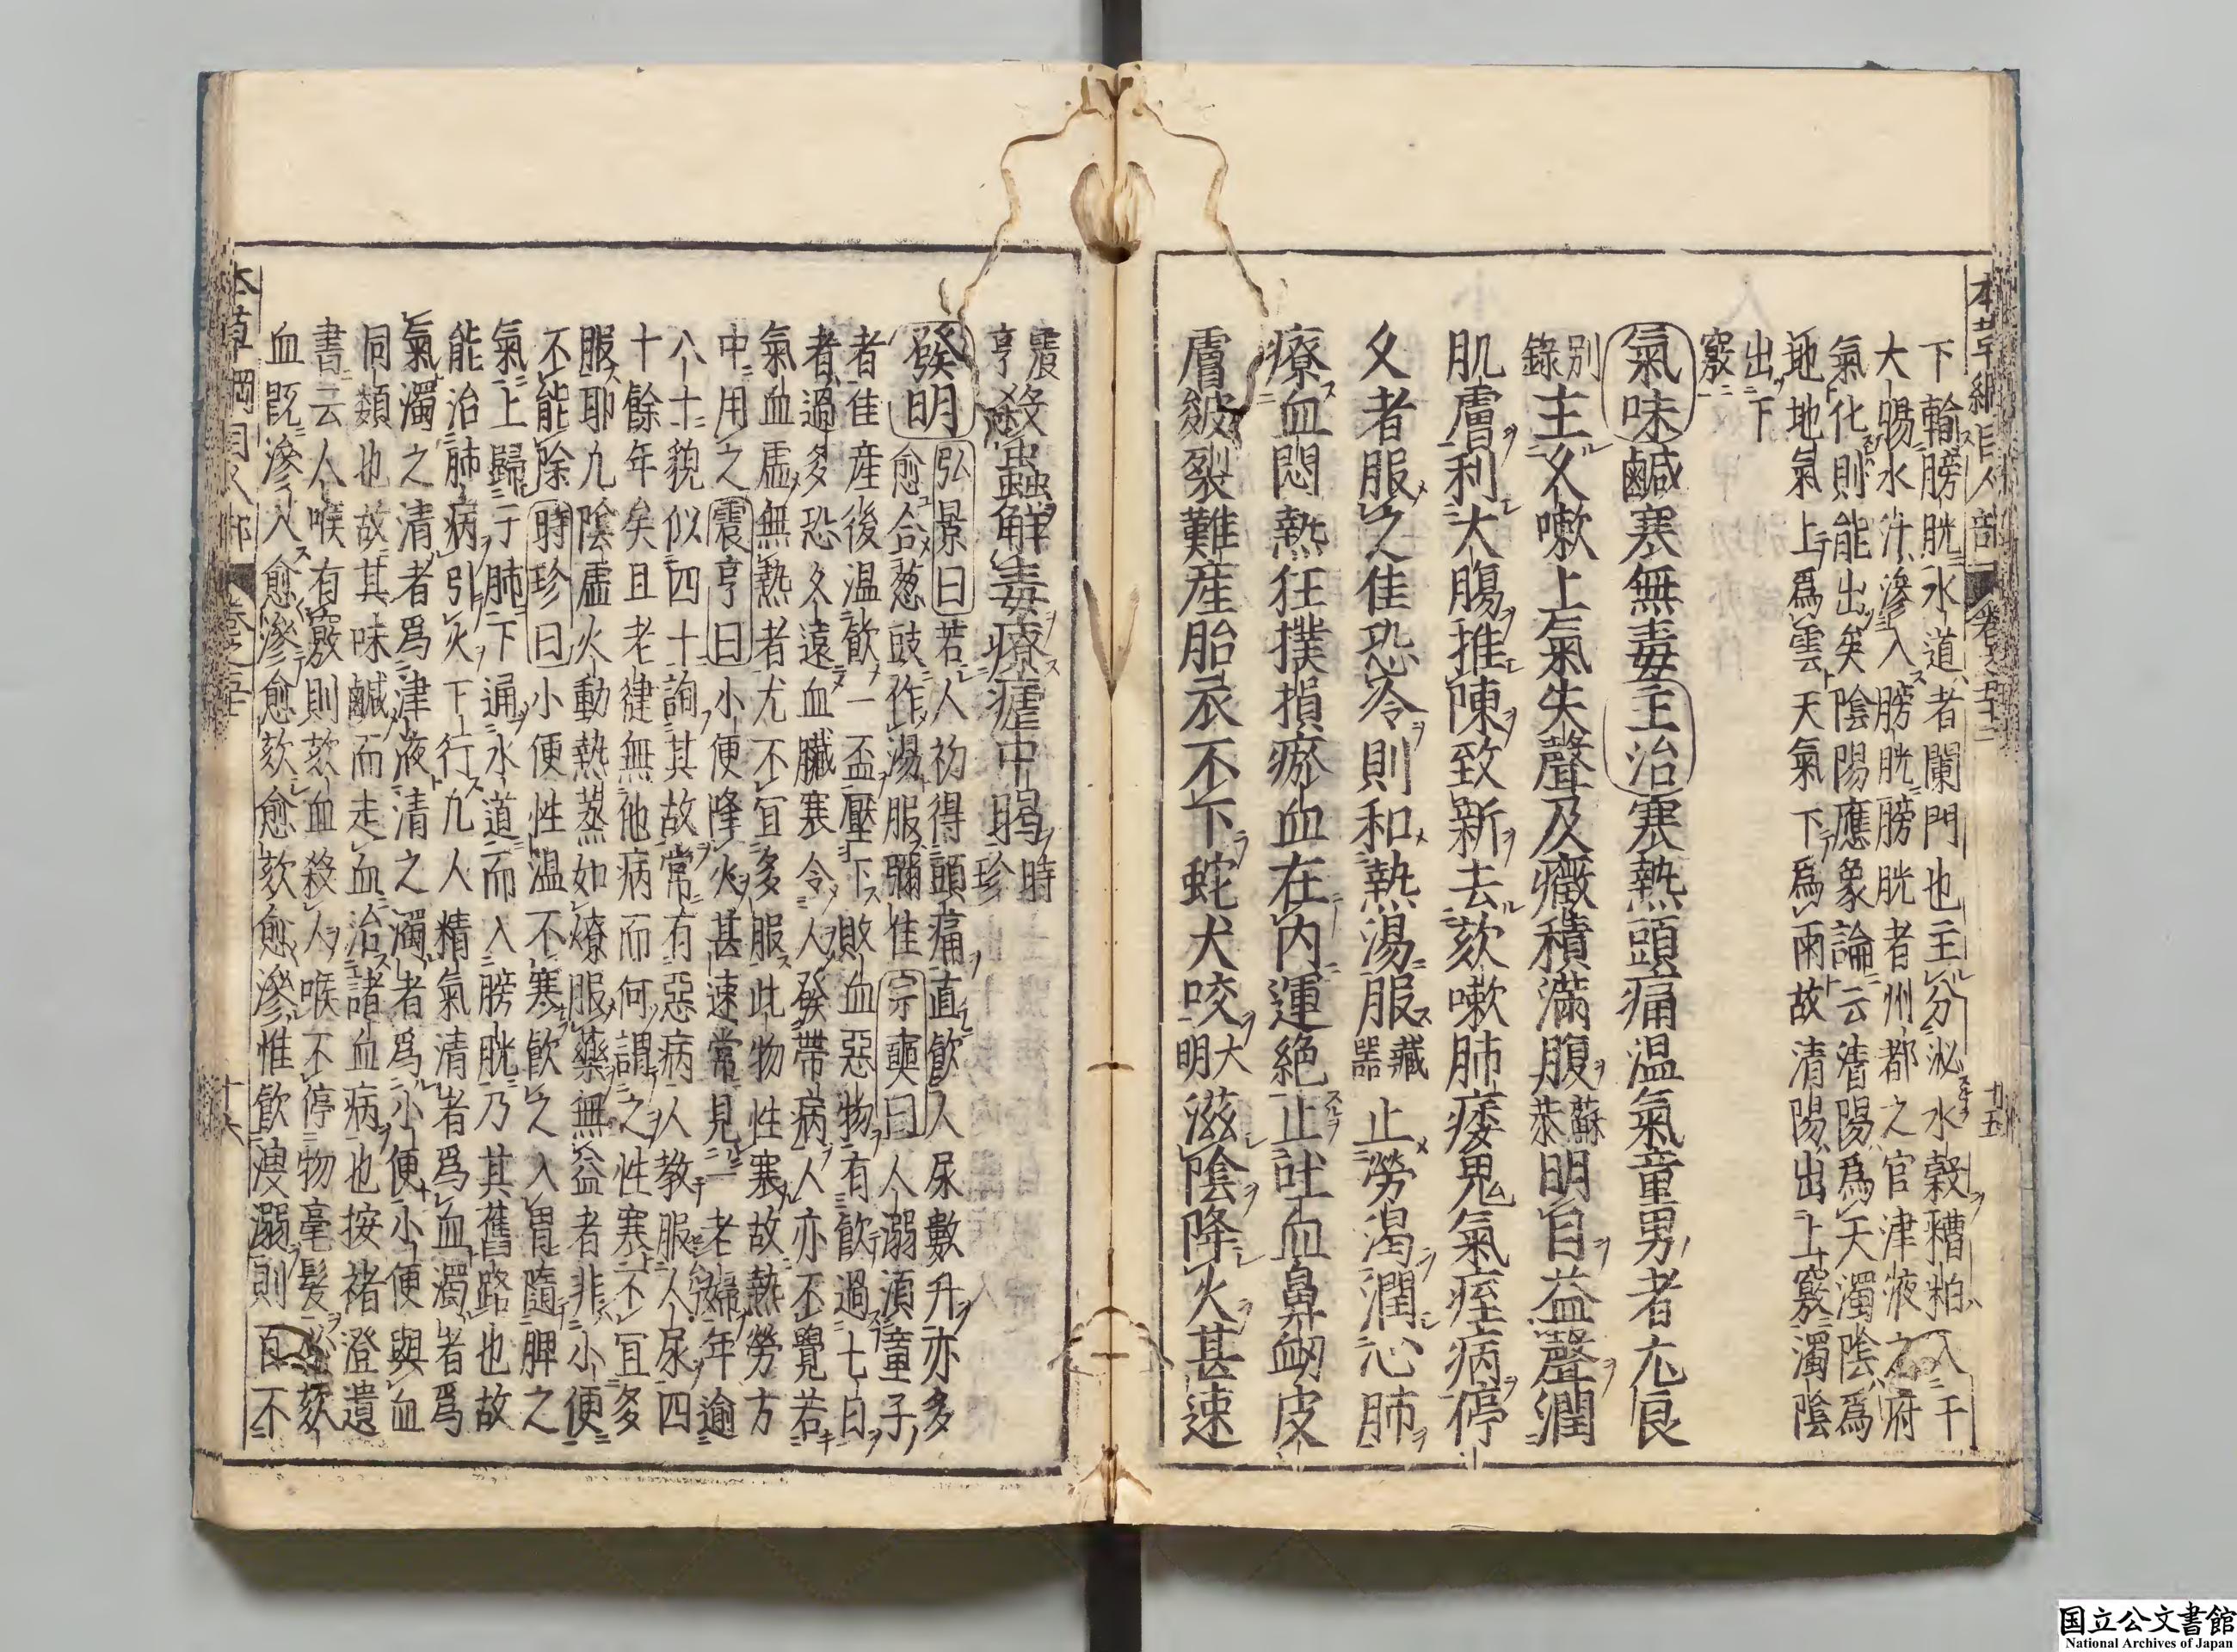 本草綱目人部 卷之五十二 十五
下輸膀胱水道者闌門也主分泌水穀糟粕入于
大腸水汁滲入膀胱膀胱者州都之官津液之府
氣化則能出矣陰陽應象論云清陽爲天濁陰爲
地地氣上爲雲天氣下爲雨故清陽出上竅濁陰
出下
竅
氣味鹹寒無毒主治寒熱頭痛温氣童男者尤良
別錄主久嗽上氣失聲及癥積滿腹蘇恭明目益聲潤
肌膚利大腸推陳致新去欬嗽肺痿鬼氣痓病停
久者服之佳恐冷則和熱湯服藏器止勞渴潤心肺
療血悶熱狂撲損瘀血在內運絕止吐血鼻衄皮
膚皴裂難産胎衣不下蛇犬咬大明滋陰降火甚速
震亨殺蟲解毒療瘧中暍時珍
發明弘景曰若人初得頭痛直飲人尿數升亦多
愈合葱豉作湯服彌佳宗奭曰人溺須童子
者佳産後温飲一盃壓下敗血惡物有飲過七日
者過多恐久遠血臟寒令人發帶病人亦不覺若
氣血虛無熱者尤不宜多服此物性寒故熱勞方
中用之震亨曰小便降火甚速常見一老婦年逾
八十貌似四十詢其故常有惡病人教服人尿四
十餘年矣且老健無他病而何謂之性寒不宜多
服耶凡陰虛火動熱蒸如燎服藥無益者非小便
不能除時珍曰小便性温不寒飲之入胃隨脾之
氣上歸于肺下通水道而入膀胱乃其舊路也故
能治肺病引火下行凡人精氣清者爲血濁者爲
氣濁之清者爲津液清之濁者爲小便小便與血
同類也故其味鹹而走血治諸血病也按褚澄遺
書云人喉有竅則欬血殺人喉不停物毫髮必欬
血旣滲入愈滲愈欬愈欬愈滲惟飲溲溺則百不
本草綱目人部 卷之五十二 十六
国立公文書館
National Archives of Japan